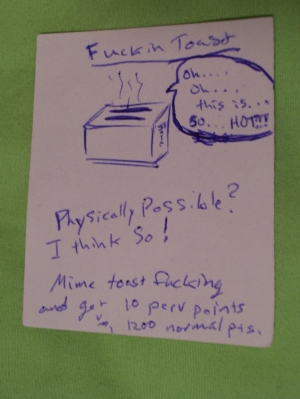 Fuckin Toast
Oh....
Oh...
this is...
so... HOT!!!
Physically Possible?
I think So!
Mime toast fucking
and get 10 perv points
1200 normal pts.